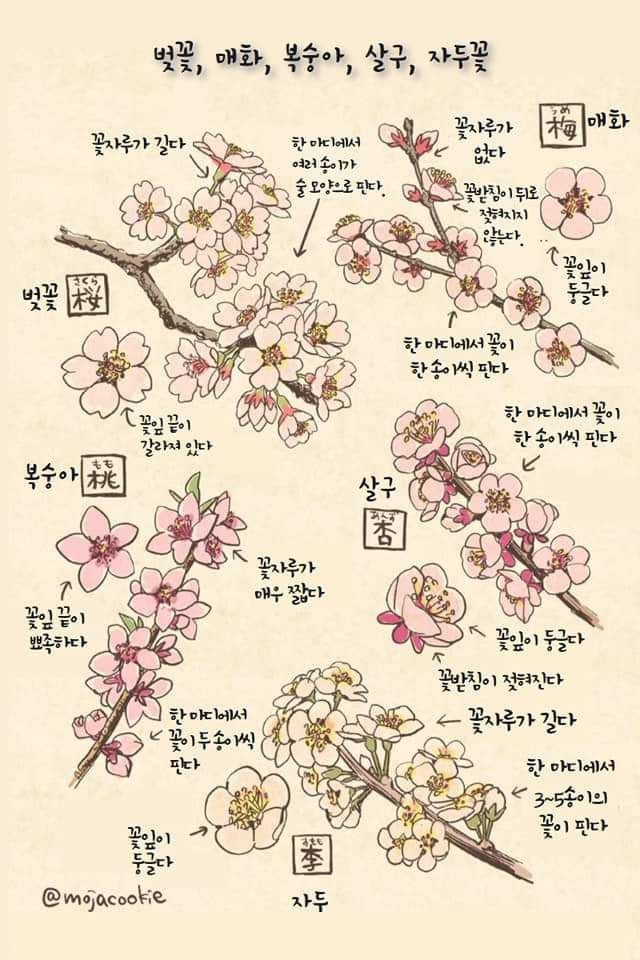 벚꽃, 매화, 복숭아, 살구, 자두꽃
꽃자루가 길다
한 마디에서
여러 송이가
술 모양으로 핀다.
벚꽃
さくら
桜
꽃잎 끝이
갈라져 있다
꽃자루가
없다
うめ
梅
매화
꽃받침이 뒤로
젖혀지지
않는다.
꽃잎이
둥글다
한 마디에서 꽃이
한 송이씩 핀다
복숭아
もも
桃
꽃잎 끝이
뾰족하다
꽃자루가
매우 짧다
한 마디에서
꽃이 두 송이씩
핀다
살구
あんず
杏
한 마디에서 꽃이
한 송이씩 핀다
꽃잎이 둥글다
꽃받침이 젖혀진다
꽃자루가 길다
한 마디에서
3~5송이의
꽃이 핀다
꽃잎이
둥글다
すもも
李
자두
@mojacookie